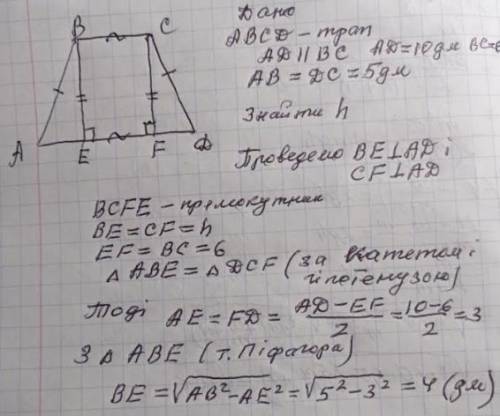 B C
A E F D
Дано
ABCD - трап
AD || BC AD = 10 дм BC=6
AB = DC = 5 дм
Знайти h
Проведемо BE⊥AD і
CF⊥AD
BCFE - прямокутник
BE = CF = h
EF = BC = 6
△ ABE = △ DCF (за катетом і
гіпотенузою)
Тоді AE = FD = (AD-EF)/2 = (10-6)/2 = 3
З △ ABE (т. Піфагора)
BE = √(AB²-AE²) = √(5²-3²) = 4 (дм)